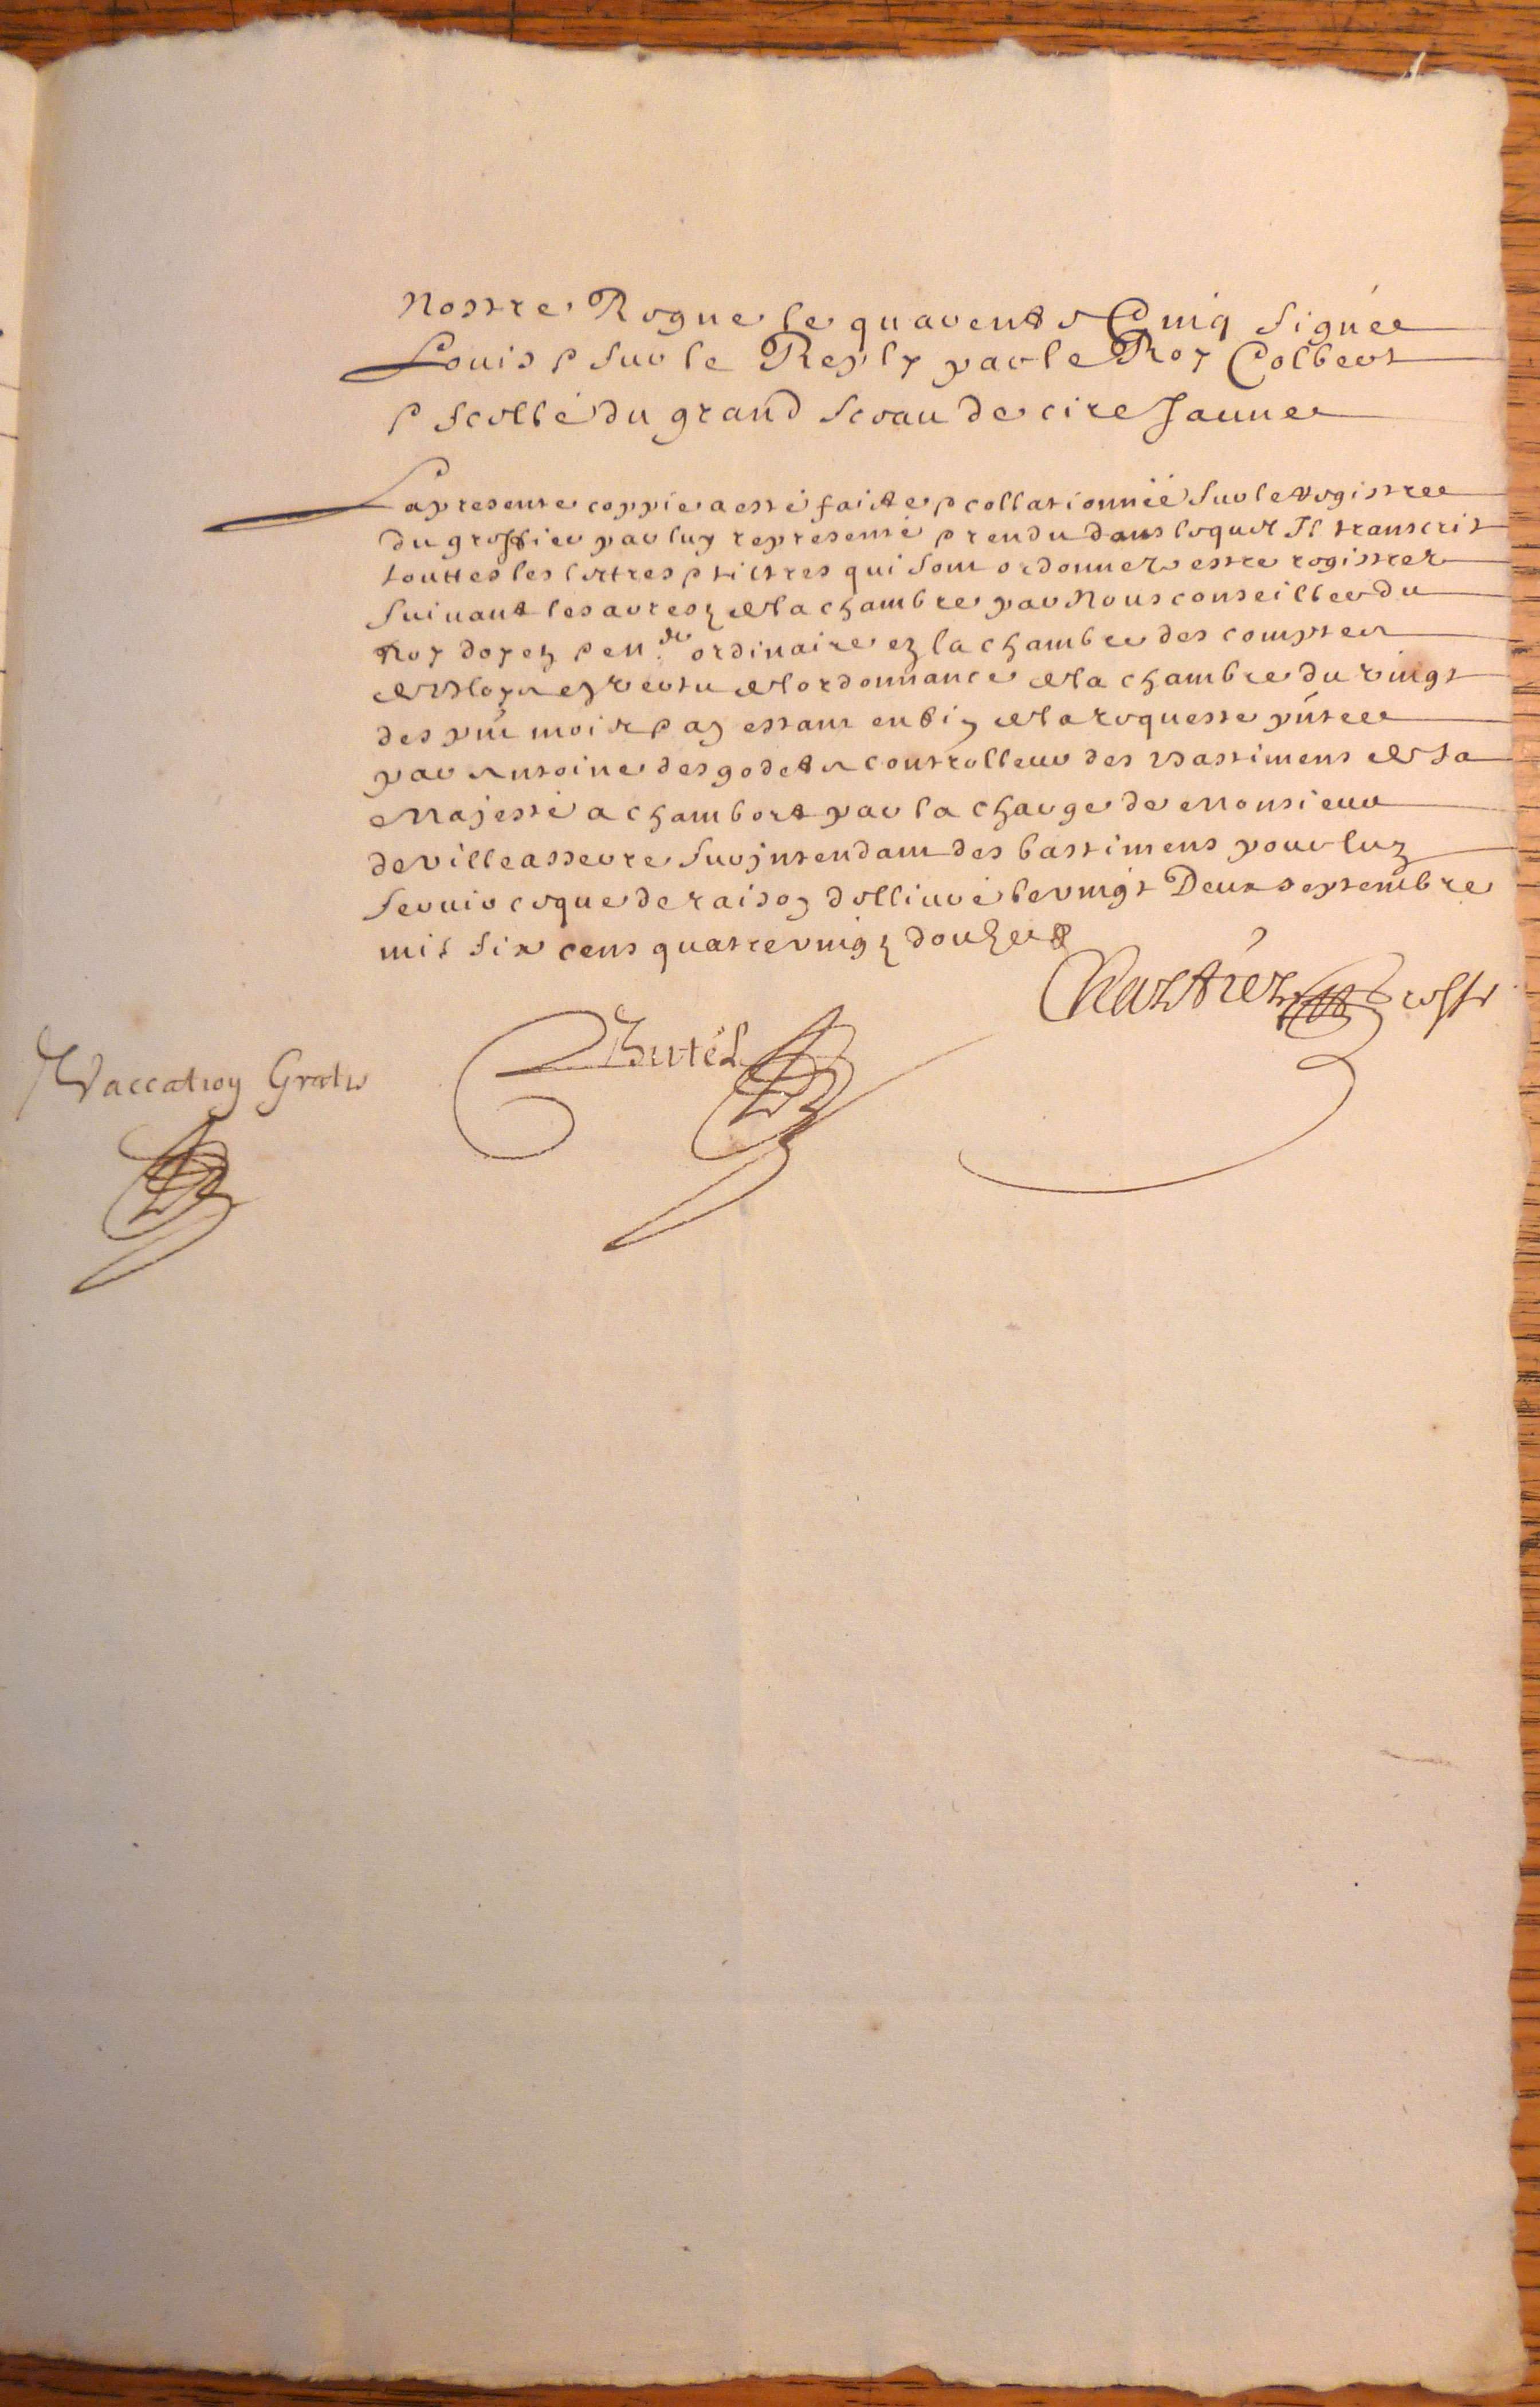 Nostre Regne le quarente Cinq Signée
Louis & sur le Reply par le Roy Colbert
& scellé du grand sceau de cire Jaune
La presente coppie a esté faicte & collationnée sur le registre
du greffier par luy representé & rendu dans lequel Il transcrit
touttes les lettres & tiltres qui sont ordonnez estre registrez
suivant les arrestz de la chambre par Nous conseiller du
Roy doyen & en ordinaire en la chambre des comptes
de Bloys en vertu de lordonnance de la chambre du vingt
des pñt mois & an estant en fin de la requeste pñtee
par Antoine desgodets controlleur des Bastimens de sa
Majesté a chambort par la charge de Monsieur
de villeasseure surjntendant des bastimens pour luy
servir ce que de raison delliuré le vingt Deux septembre
mil six cens quatre vingtz douze
Greffr
Butel
Vaccation Gratis